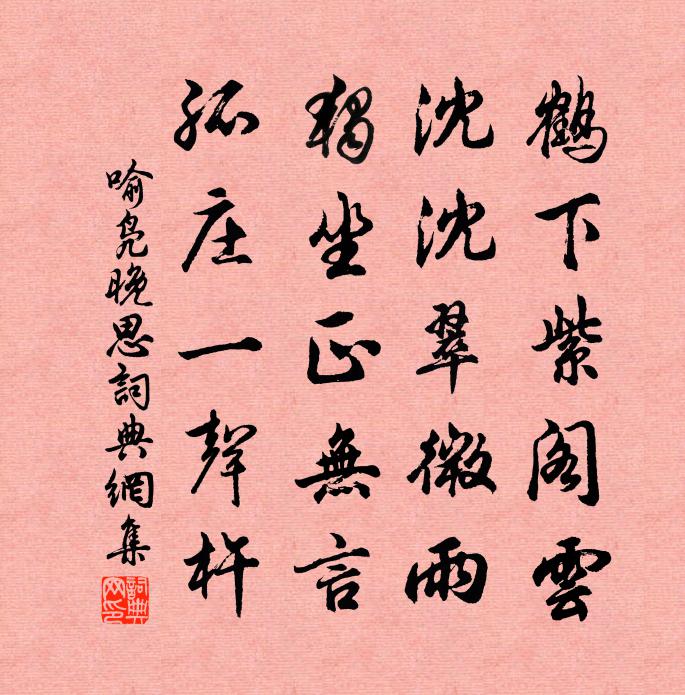 鶴下紫阁雲
沈沈翠微雨
獨坐正無言
孤庄一聲杵
喻凫晚思詞典網集
詞典网印